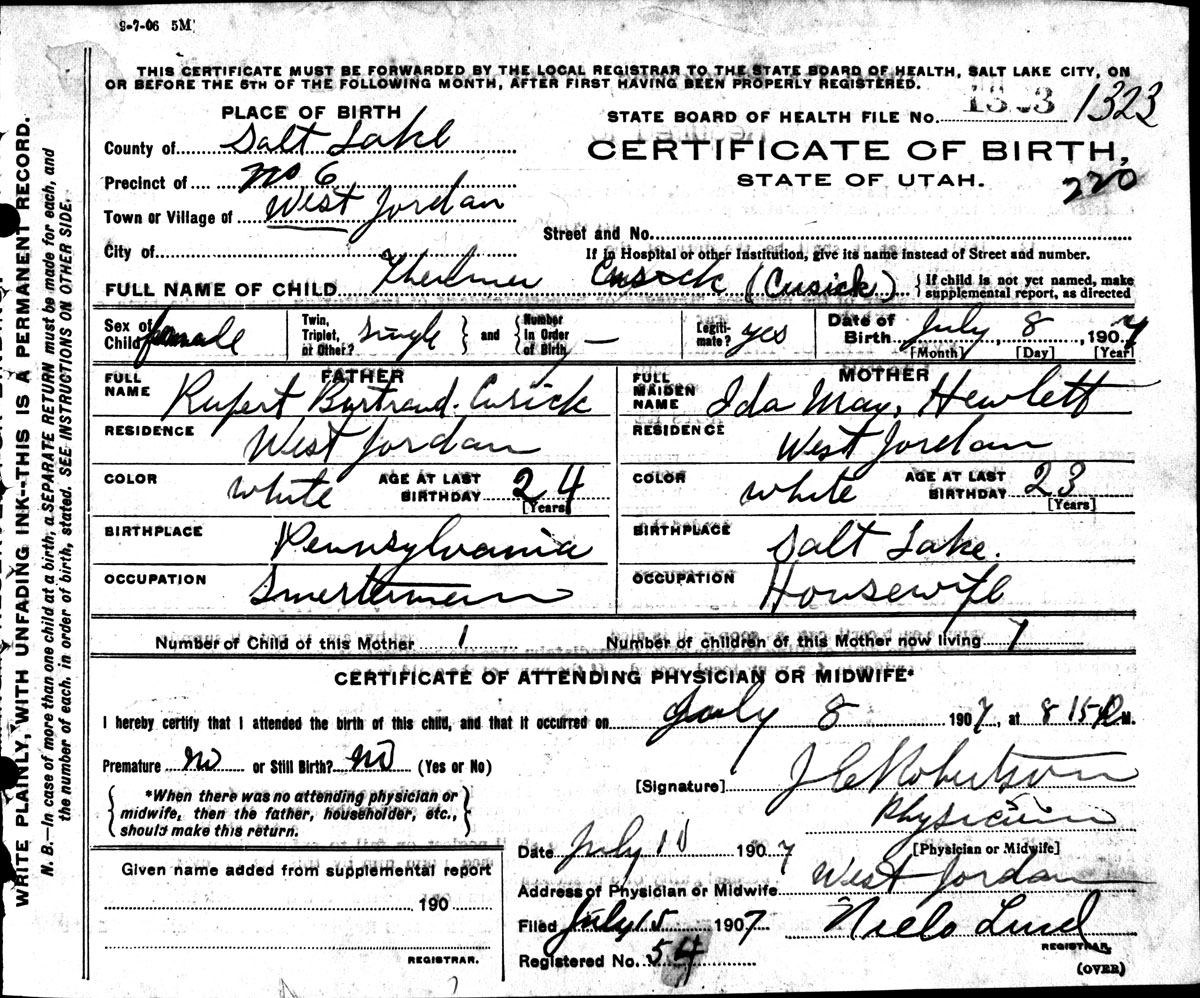 9-7-06 5M
THIS CERTIFICATE MUST BE FORWARDED BY THE LOCAL REGISTRAR TO THE STATE BOARD OF HEALTH, SALT LAKE CITY, ON
OR BEFORE THE 5TH OF THE FOLLOWING MONTH, AFTER FIRST HAVING BEEN PROPERLY REGISTERED.
PLACE OF BIRTH
STATE BOARD OF HEALTH FILE No. 1323
County of Salt Lake
CERTIFICATE OF BIRTH,
STATE OF UTAH.
Precinct of No 6
220
Town or Village of West Jordan
Street and No.
City of
If in Hospital or other Institution, give its name instead of Street and number.
FULL NAME OF CHILD Cusick (Cusick) { If child is not yet named, make
supplemental report, as directed
Sex of Child female Twin, Triplet, or Other? single } and { Number in Order of Birth — Legiti-mate? yes Date of Birth July 8, 1907
[Month] [Day] [Year]
FATHER
MOTHER
FULL NAME Rupert Bertrand Cusick
FULL MAIDEN NAME Ida May, Hewlett
RESIDENCE West Jordan
RESIDENCE West Jordan
COLOR white AGE AT LAST BIRTHDAY 24 [Years]
COLOR white AGE AT LAST BIRTHDAY 23 [Years]
BIRTHPLACE Pennsylvania
BIRTHPLACE Salt Lake.
OCCUPATION
OCCUPATION Housewife
Number of Child of this Mother 1 Number of children of this Mother now living
CERTIFICATE OF ATTENDING PHYSICIAN OR MIDWIFE*
I hereby certify that I attended the birth of this child, and that it occurred on July 8 1907, at 8 15 P M.
Premature no or Still Birth? no (Yes or No)
[Signature] J C Robertson
*When there was no attending physician or
midwife, then the father, householder, etc.,
should make this return.
Physician
[Physician or Midwife]
Date July 1907
Address of Physician or Midwife West Jordan
Given name added from supplemental report
190
REGISTRAR.
Filed July 15 1907 Niels Lind
REGISTRAR.
Registered No. 54
(OVER)
WRITE PLAINLY, WITH UNFADING INK--THIS IS A PERMANENT RECORD.
N. B.—In case of more than one child at a birth, a SEPARATE RETURN must be made for each, and
the number of each, in order of birth, stated. SEE INSTRUCTIONS ON OTHER SIDE.